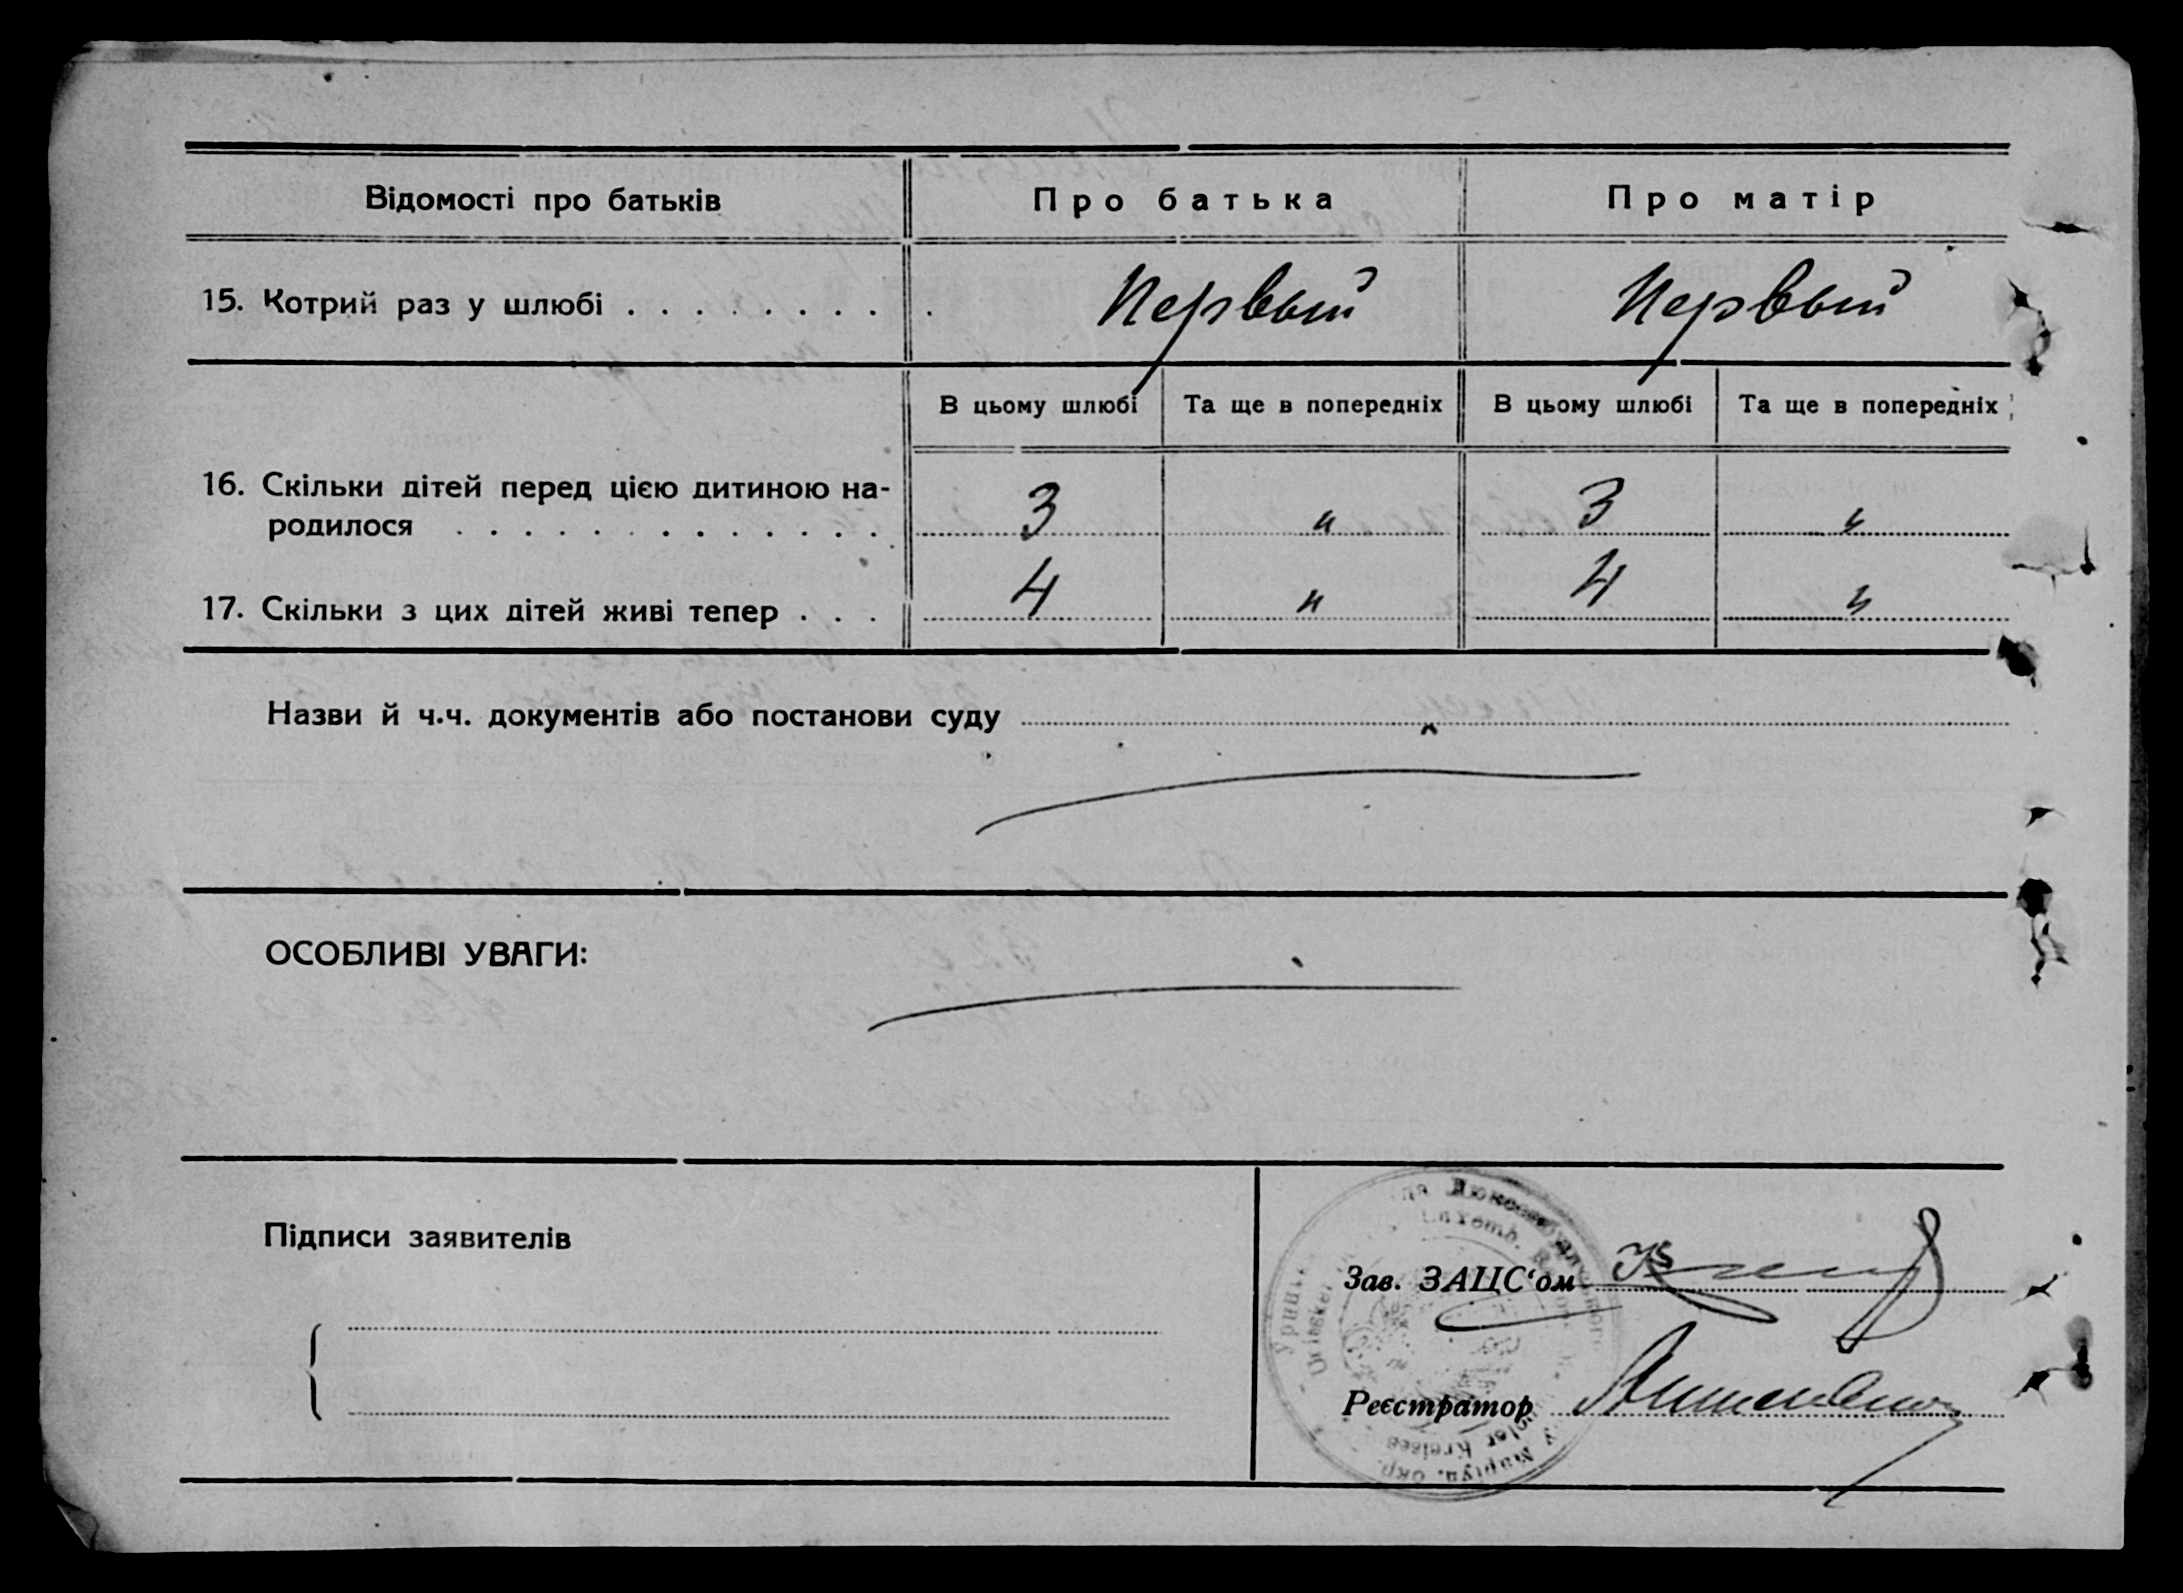 Відомості про батьків
Про батька
Про матір
15. Котрий раз у шлюбі . . . . . . . . .
Первый
Первый
В цьому шлюбі
Та ще в попередніх
В цьому шлюбі
Та ще в попередніх
16. Скільки дітей перед цією дитиною на-
родилося . . . . . . . . . . . . .
3
"
3
"
17. Скільки з цих дітей живі тепер . . .
4
"
4
"
Назви й ч.ч. документів або постанови суду
ОСОБЛИВІ УВАГИ:
Підписи заявителів
Зав. ЗАЦС‘ом
Реєстратор
Люксембургського
Luxemb.
Маріуп. окр.
Kreises